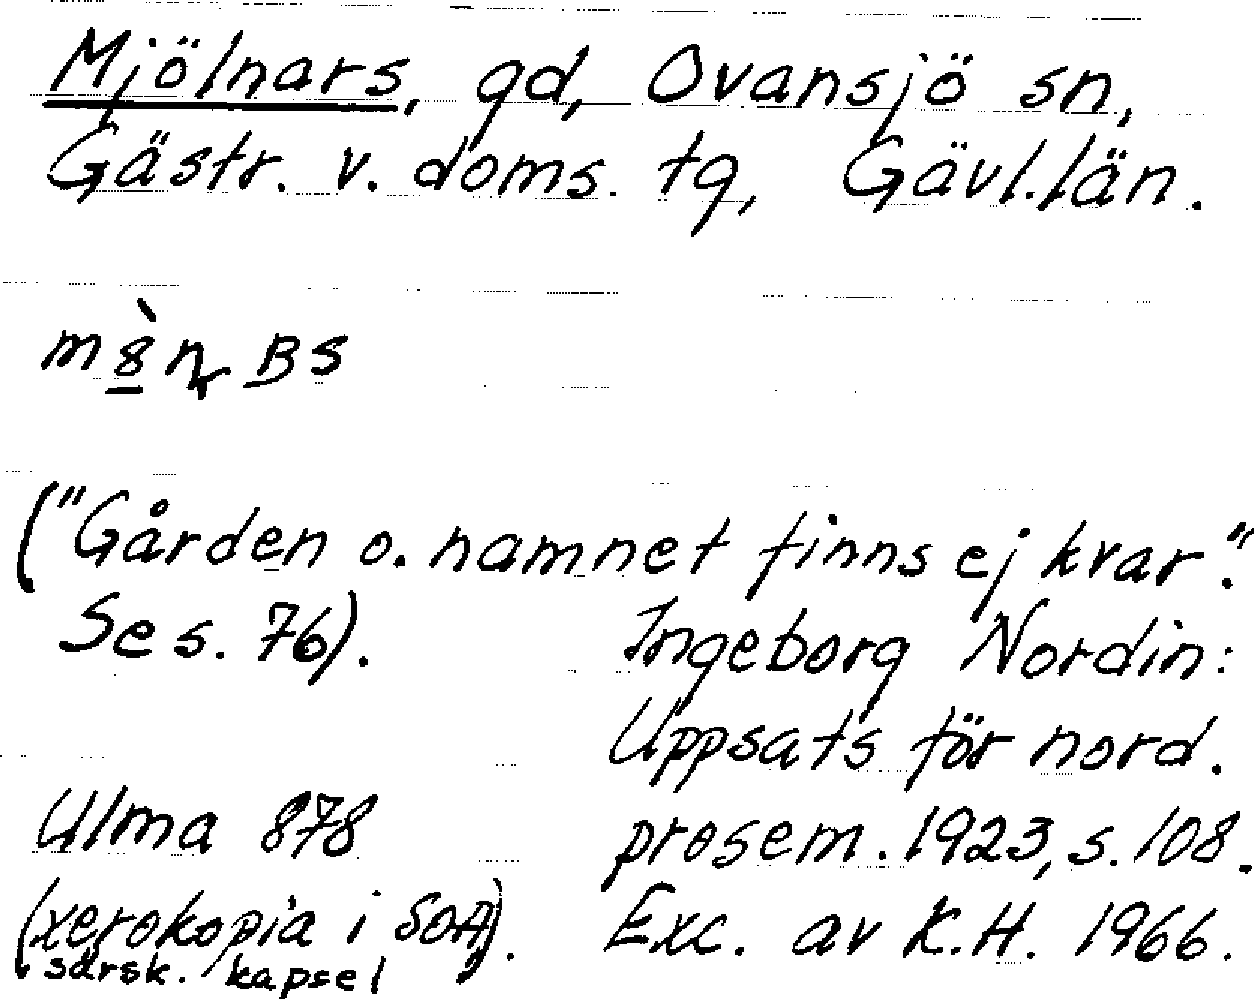 Mjölnars, gd, Ovansjö sn,
Gästr. v. doms. tg, Gävl. län.
("Gården o. namnet finns ej kvar."
Se s. 76).
Ingeborg Nordin:
Uppsats för nord.
prosem. 1923, s. 108.
Exc. av K.H. 1966.
Ulma 878
(xerokopia i SOA).
särsk. kapsel